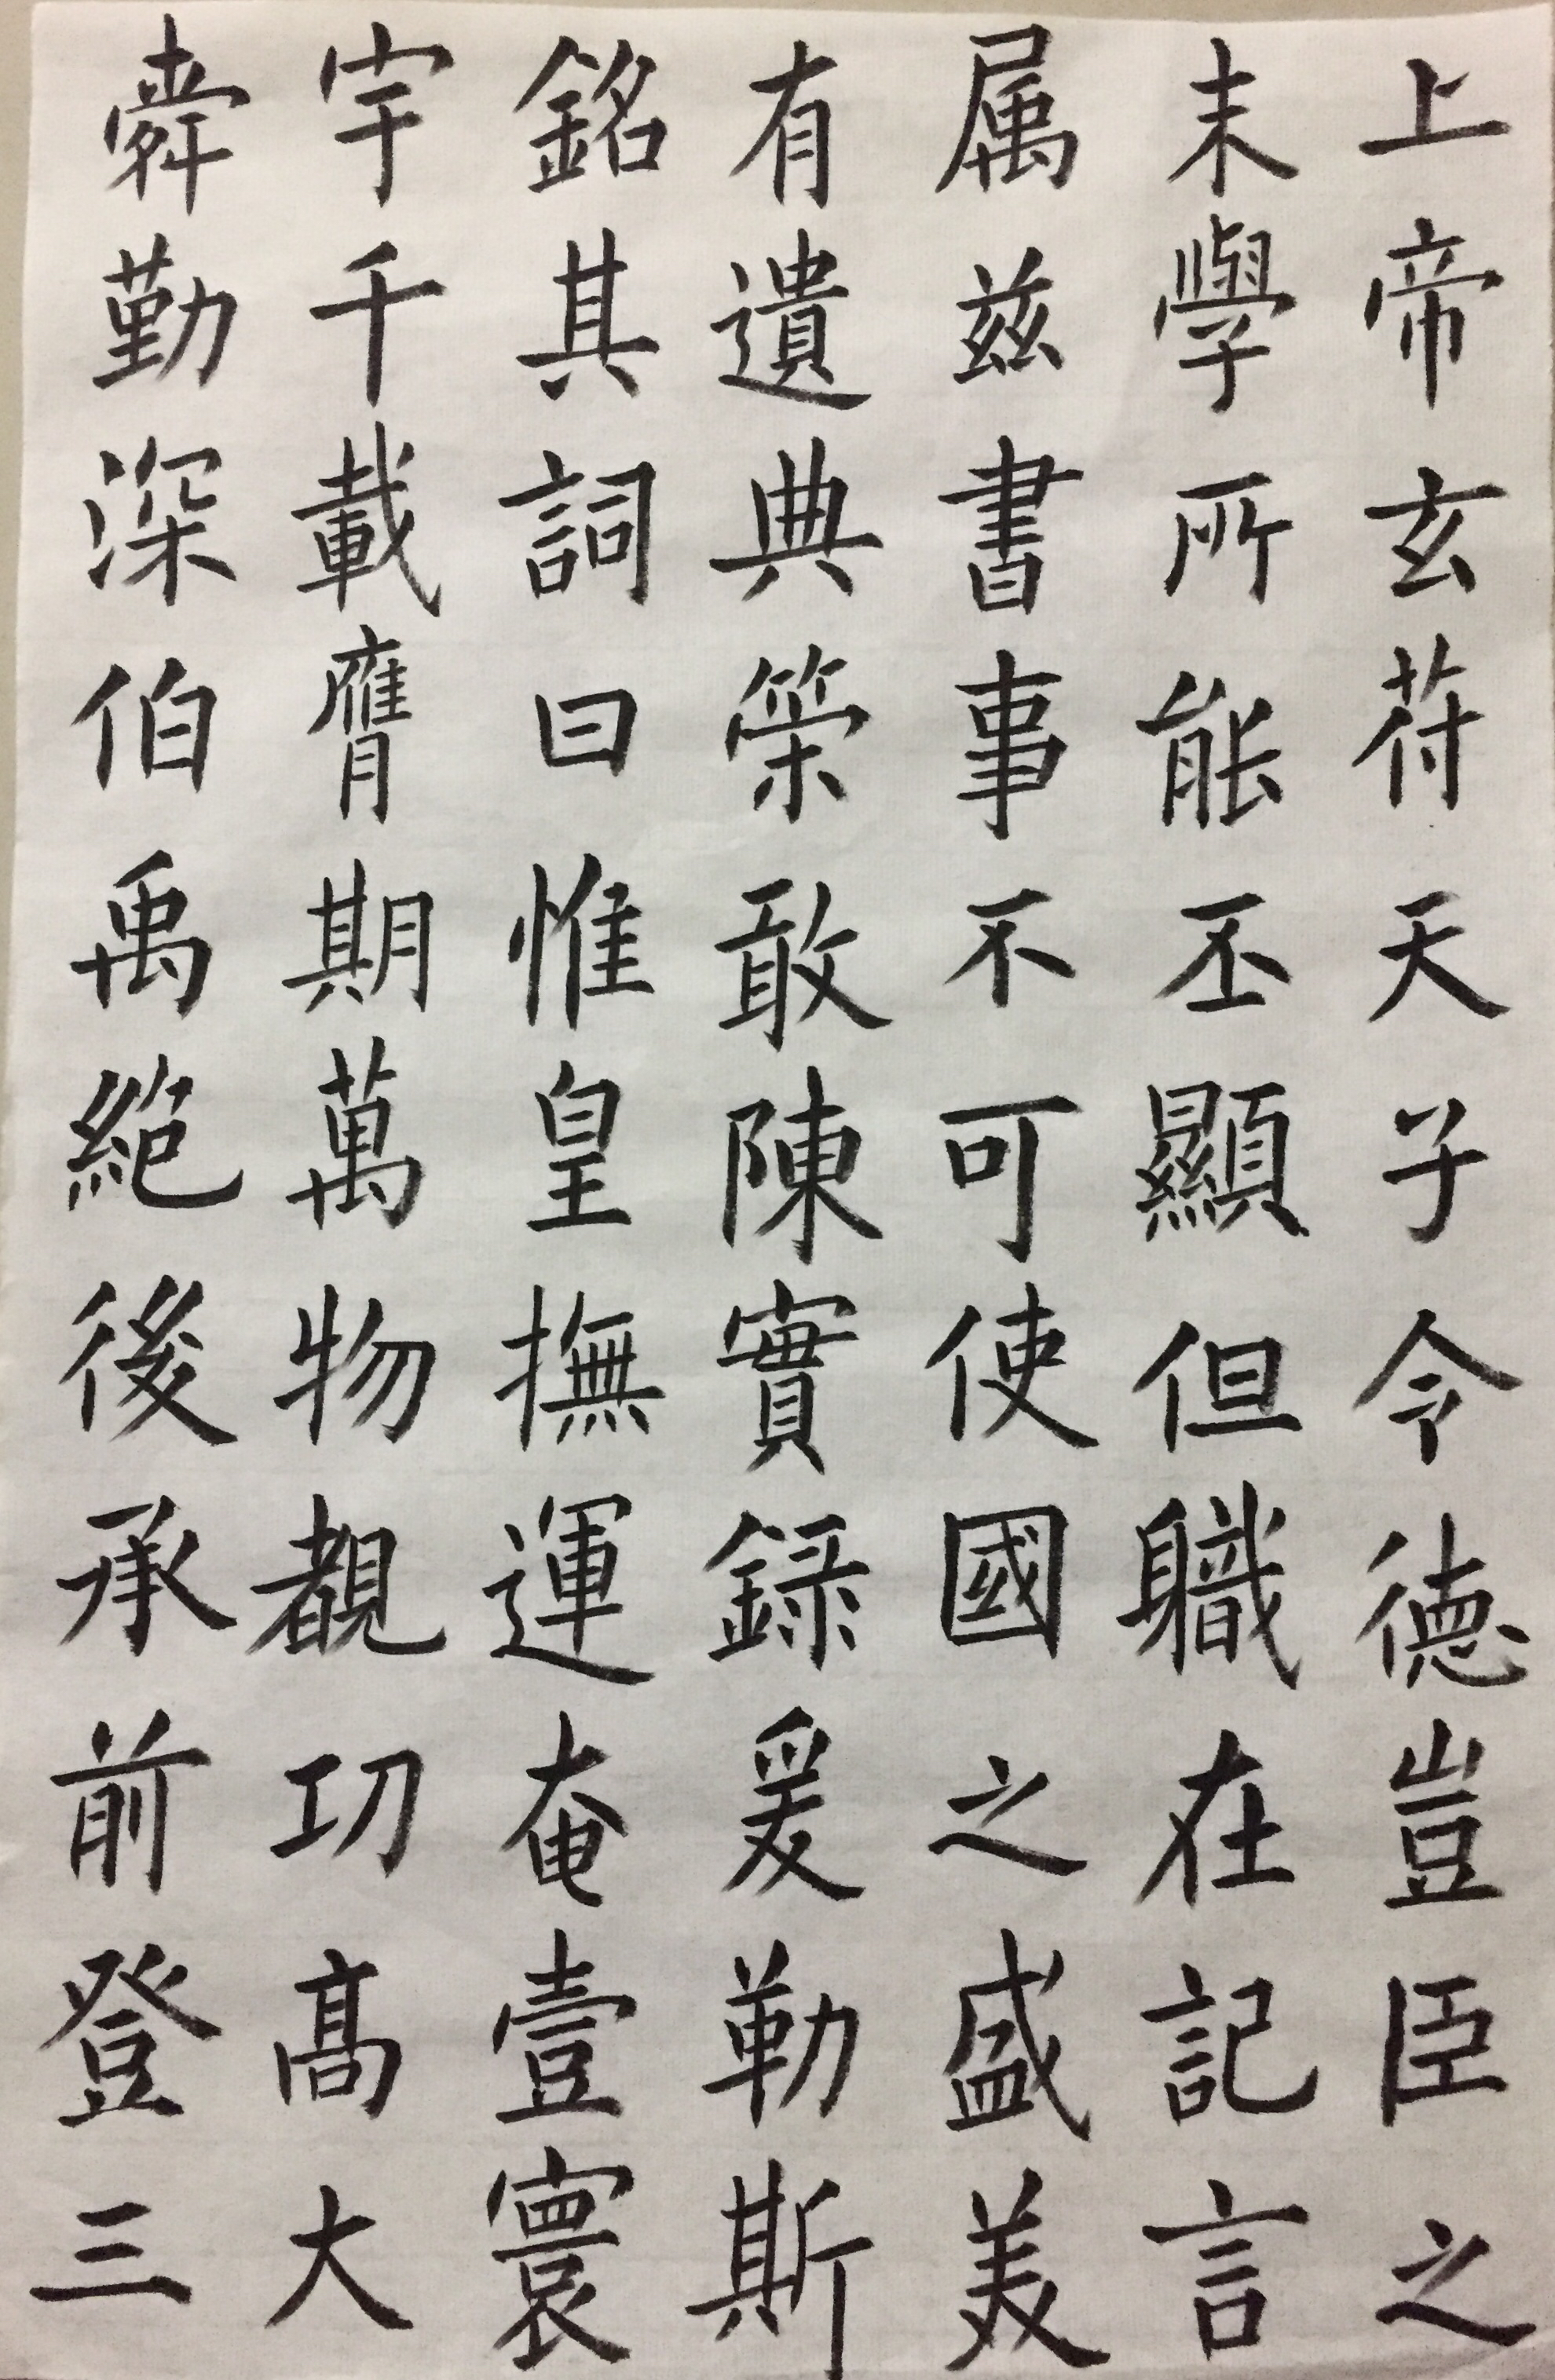 上帝玄苻天子令德豈臣之
末學所能丕顯但職在記言
属兹書事不可使國之盛美
有遺典策敢陳實録爰勒斯
銘其詞曰惟皇撫運奄壹寰
宇千載膺期萬物覩功高大
舜勤深伯禹絶後承前登三